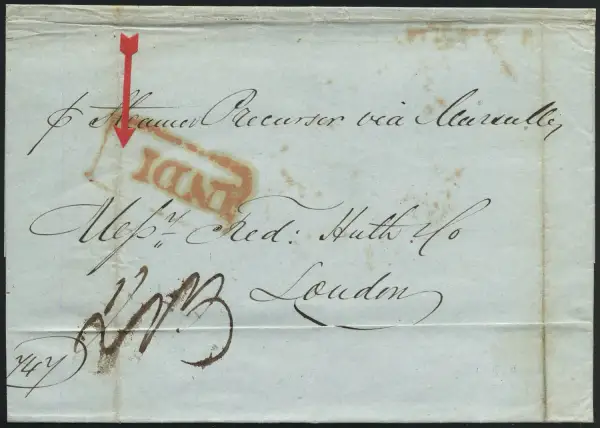 p Steamer Precursor via Marseilles
INDI
Messrs Fred: Huth & Co
London
747